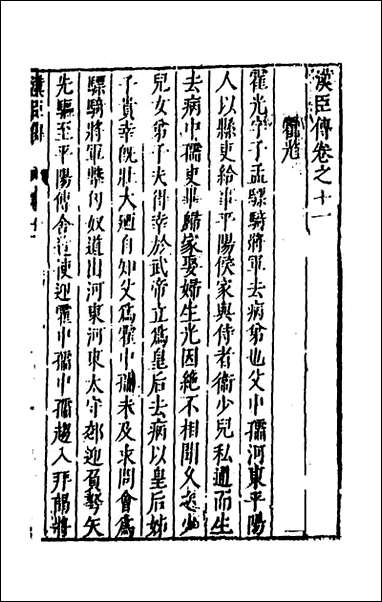 漢臣傳卷之十一
霍光
霍光字子孟驃騎將軍去病弟也父中孺河東平陽
人以縣吏給事平陽侯家與侍者衛少兒私通而生
去病中孺吏畢歸家娶婦生光因絕不相聞久之少
兒女弟子夫得幸於武帝立爲皇后去病以皇后姊
子貴幸旣壯大迺自知父爲霍中孺未及求問會爲
驃騎將軍擊匈奴道出河東河東太守郊迎負弩矢
先驅至平陽傳舍遣吏迎霍中孺中孺趨入拜謁將
漢臣傳